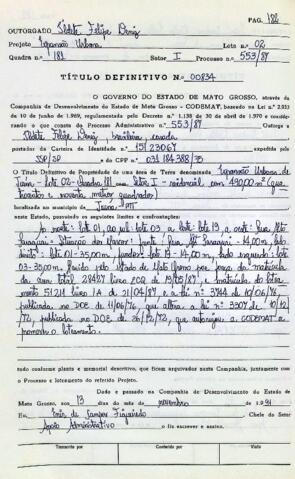 PAG. 182
OUTORGADO Odete Felipe Deniz
Projeto Expansão Urbana Lote n.o 02
Quadra n.o 181 Setor I Processo n.o 553/87
TÍTULO DEFINITIVO N.o 00834
O GOVERNO DO ESTADO DE MATO GROSSO, através da
Companhia de Desenvolvimento do Estado de Mato Grosso - CODEMAT, baseado na Lei n.o 2.031
de 10 de junho de 1.969, regulamentada pelo Decreto n.o 1.138 de 30 de abril de 1.970 e considerando
o que consta do Processo Administrativo n.o 553/87 Outorga a
Odete Felipe Deniz, brasileira, casada
portadora da Carteira de Identidade n.o 15.123067 expedida pela
SSP/SP e do CPF n.o 031.184.388/35
O Título Definitivo de Propriedade de uma área de Terra denominada Expansão Urbana de
Juína - lote 02 - Quadra 181 Setor I - residencial com 490,00m² (quatrocentos
e noventa metros quadrados)
localizada no município de Juína-MT
neste Estado, possuindo os seguintes limites e confrontações:
Ao norte: lote 01, ao sul: lote 03, a leste: lote 19, a oeste: Rua
lote 01 - 35,00m, fundos: lote 19 - 14,00m, lado esquerdo: lote
03 - 35,00m. pelo Estado de Mato Grosso por força da matrícula
da área total 28427 livro
51211 livro 1A de 21/04/87, e a Lei n.o 3744 de 10/06/76,
publicada no DOE de 11/06/76, que altera a lei n.o 3307 de 10/12/
72, publicada no DOE de 26/12/72, que autorizou a CODEMAT a
promover o loteamento.
tudo conforme planta e memorial descritivo, que ficam arquivados nesta Companhia, juntamente com
o Processo e loteamento do referido Projeto.
Dado e passado na Companhia de Desenvolvimento do Estado de
Mato Grosso, aos 13 dias do mês de novembro de 1.991
Eu, Enir de Campos Figueiredo Chefe do Setor
Apoio Administrativo o fiz escrever e assino.
Transcrito por Conferido por Visto